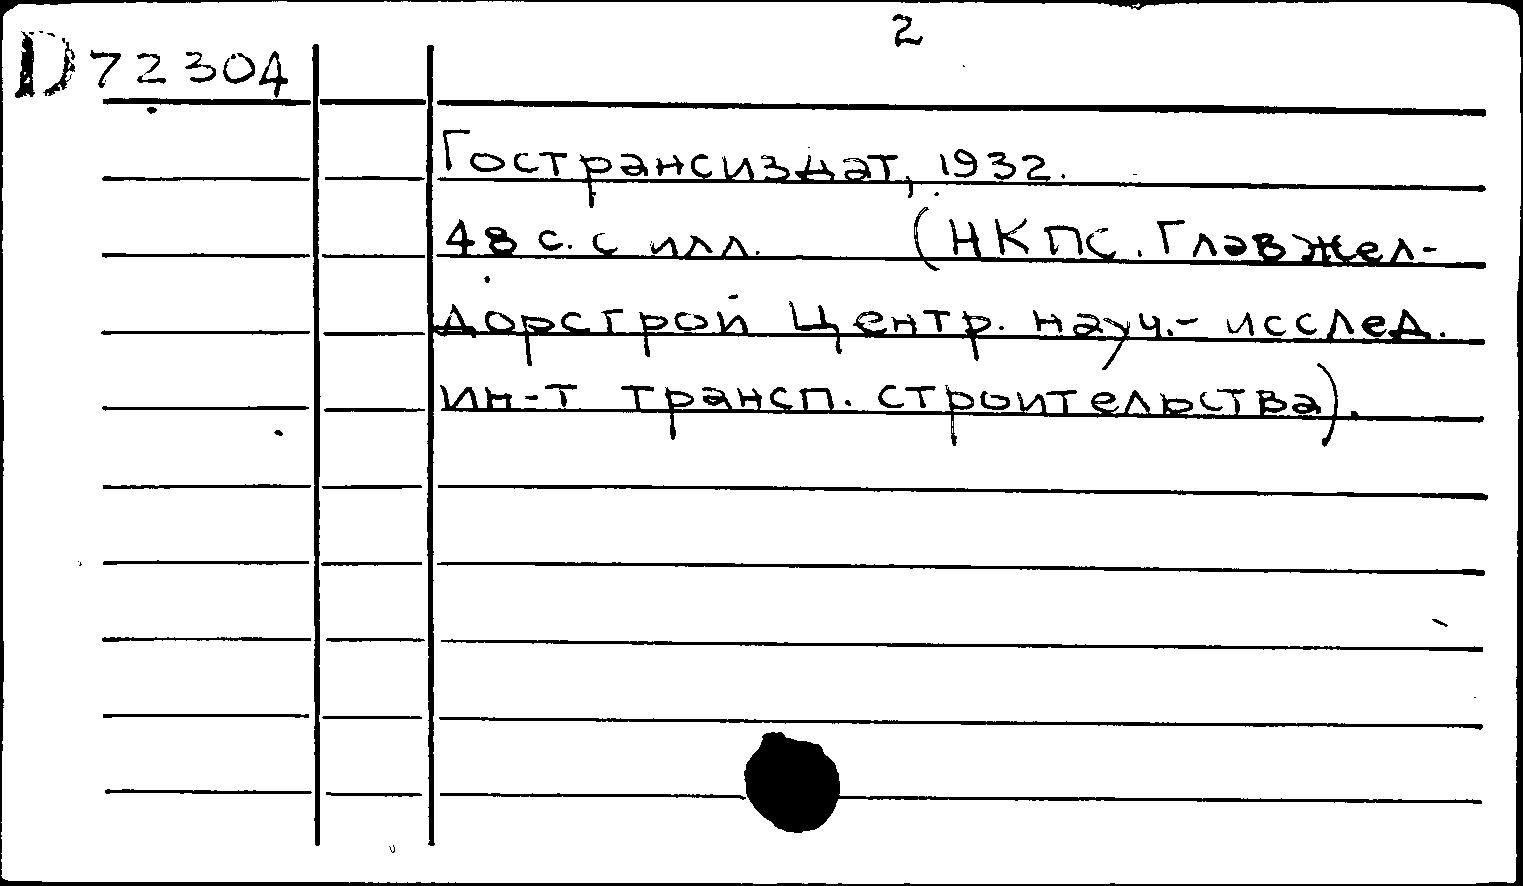 2
D 72304
Гострансиздат, 1932.
48 с. с илл. (НКПС. Главжел-
дорстрой Центр. науч.- исслед.
ин-т трансп. строительства).